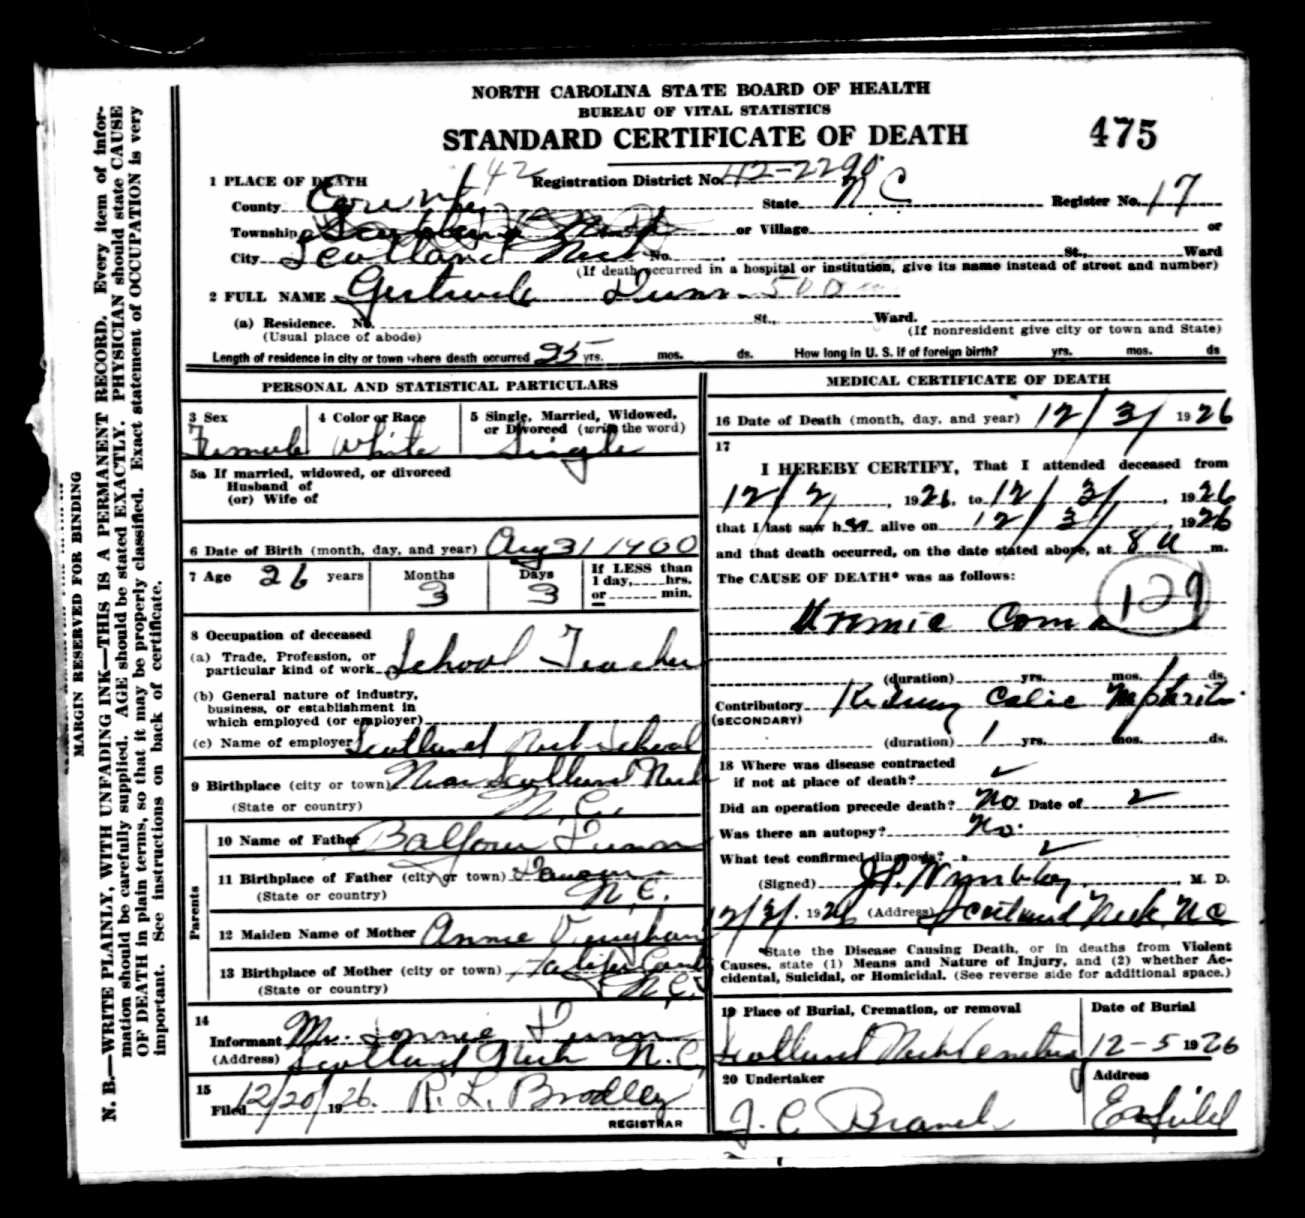 NORTH CAROLINA STATE BOARD OF HEALTH
BUREAU OF VITAL STATISTICS
STANDARD CERTIFICATE OF DEATH
475
1 PLACE OF DEATH 42 Registration District No. 42-2290
County State N C Register No. 17
Township or Village or
City Scotland Neck No. St., Ward
(If death occurred in a hospital or institution, give its name instead of street and number)
2 FULL NAME Gertrude Dunn
(a) Residence. No. St., Ward.
(Usual place of abode) (If nonresident give city or town and State)
Length of residence in city or town where death occurred 25 yrs. mos. ds. How long in U. S. if of foreign birth? yrs. mos. ds
PERSONAL AND STATISTICAL PARTICULARS
3 Sex 4 Color or Race 5 Single, Married, Widowed, or Divorced (write the word)
Female White Single
5a If married, widowed, or divorced
Husband of
(or) Wife of
6 Date of Birth (month, day, and year) Aug 31 1900
7 Age 26 years Months 3 Days 3 If LESS than 1 day, hrs. or min.
8 Occupation of deceased
(a) Trade, Profession, or particular kind of work School Teacher
(b) General nature of industry,
business, or establishment in
which employed (or employer)
(c) Name of employer Scotland Neck School
9 Birthplace (city or town) Near Scotland Neck
(State or country) N. C.
Parents
10 Name of Father Balfour Dunn
11 Birthplace of Father (city or town)
(State or country) N. C.
12 Maiden Name of Mother Annie Vaughan
13 Birthplace of Mother (city or town) Halifax County
(State or country) N. C.
14
Informant Mr. Dunn
(Address) Scotland Neck N. C.
15
Filed 12/20/1926. R. L. Bradley
REGISTRAR
MEDICAL CERTIFICATE OF DEATH
16 Date of Death (month, day, and year) 12/3/ 1926
17
I HEREBY CERTIFY, That I attended deceased from
12/2, 1926, to 12/3/, 1926
that I last saw her alive on 12/3/, 1926
and that death occurred, on the date stated above, at 8 a m.
The CAUSE OF DEATH* was as follows:
129
Uremic Coma
(duration) yrs. mos. ds.
Contributory Kidney Colic Nephritis
(SECONDARY)
(duration) 1 yrs. mos. ds.
18 Where was disease contracted
if not at place of death? ✓
Did an operation precede death? No Date of
Was there an autopsy? No.
What test confirmed diagnosis? ✓
(Signed) J. P. M. D.
12/3/. 1926 (Address) Scotland Neck N C
*State the Disease Causing Death, or in deaths from Violent
Causes, state (1) Means and Nature of Injury, and (2) whether Ac-
cidental, Suicidal, or Homicidal. (See reverse side for additional space.)
19 Place of Burial, Cremation, or removal Date of Burial
Scotland Neck Cemetery 12-5 1926
20 Undertaker Address
J. C. Branch Enfield
MARGIN RESERVED FOR BINDING
N. B.—WRITE PLAINLY, WITH UNFADING INK—THIS IS A PERMANENT RECORD. Every item of infor-
mation should be carefully supplied. AGE should be stated EXACTLY. PHYSICIAN should state CAUSE
OF DEATH in plain terms, so that it may be properly classified. Exact statement of OCCUPATION is very
important. See instructions on back of certificate.